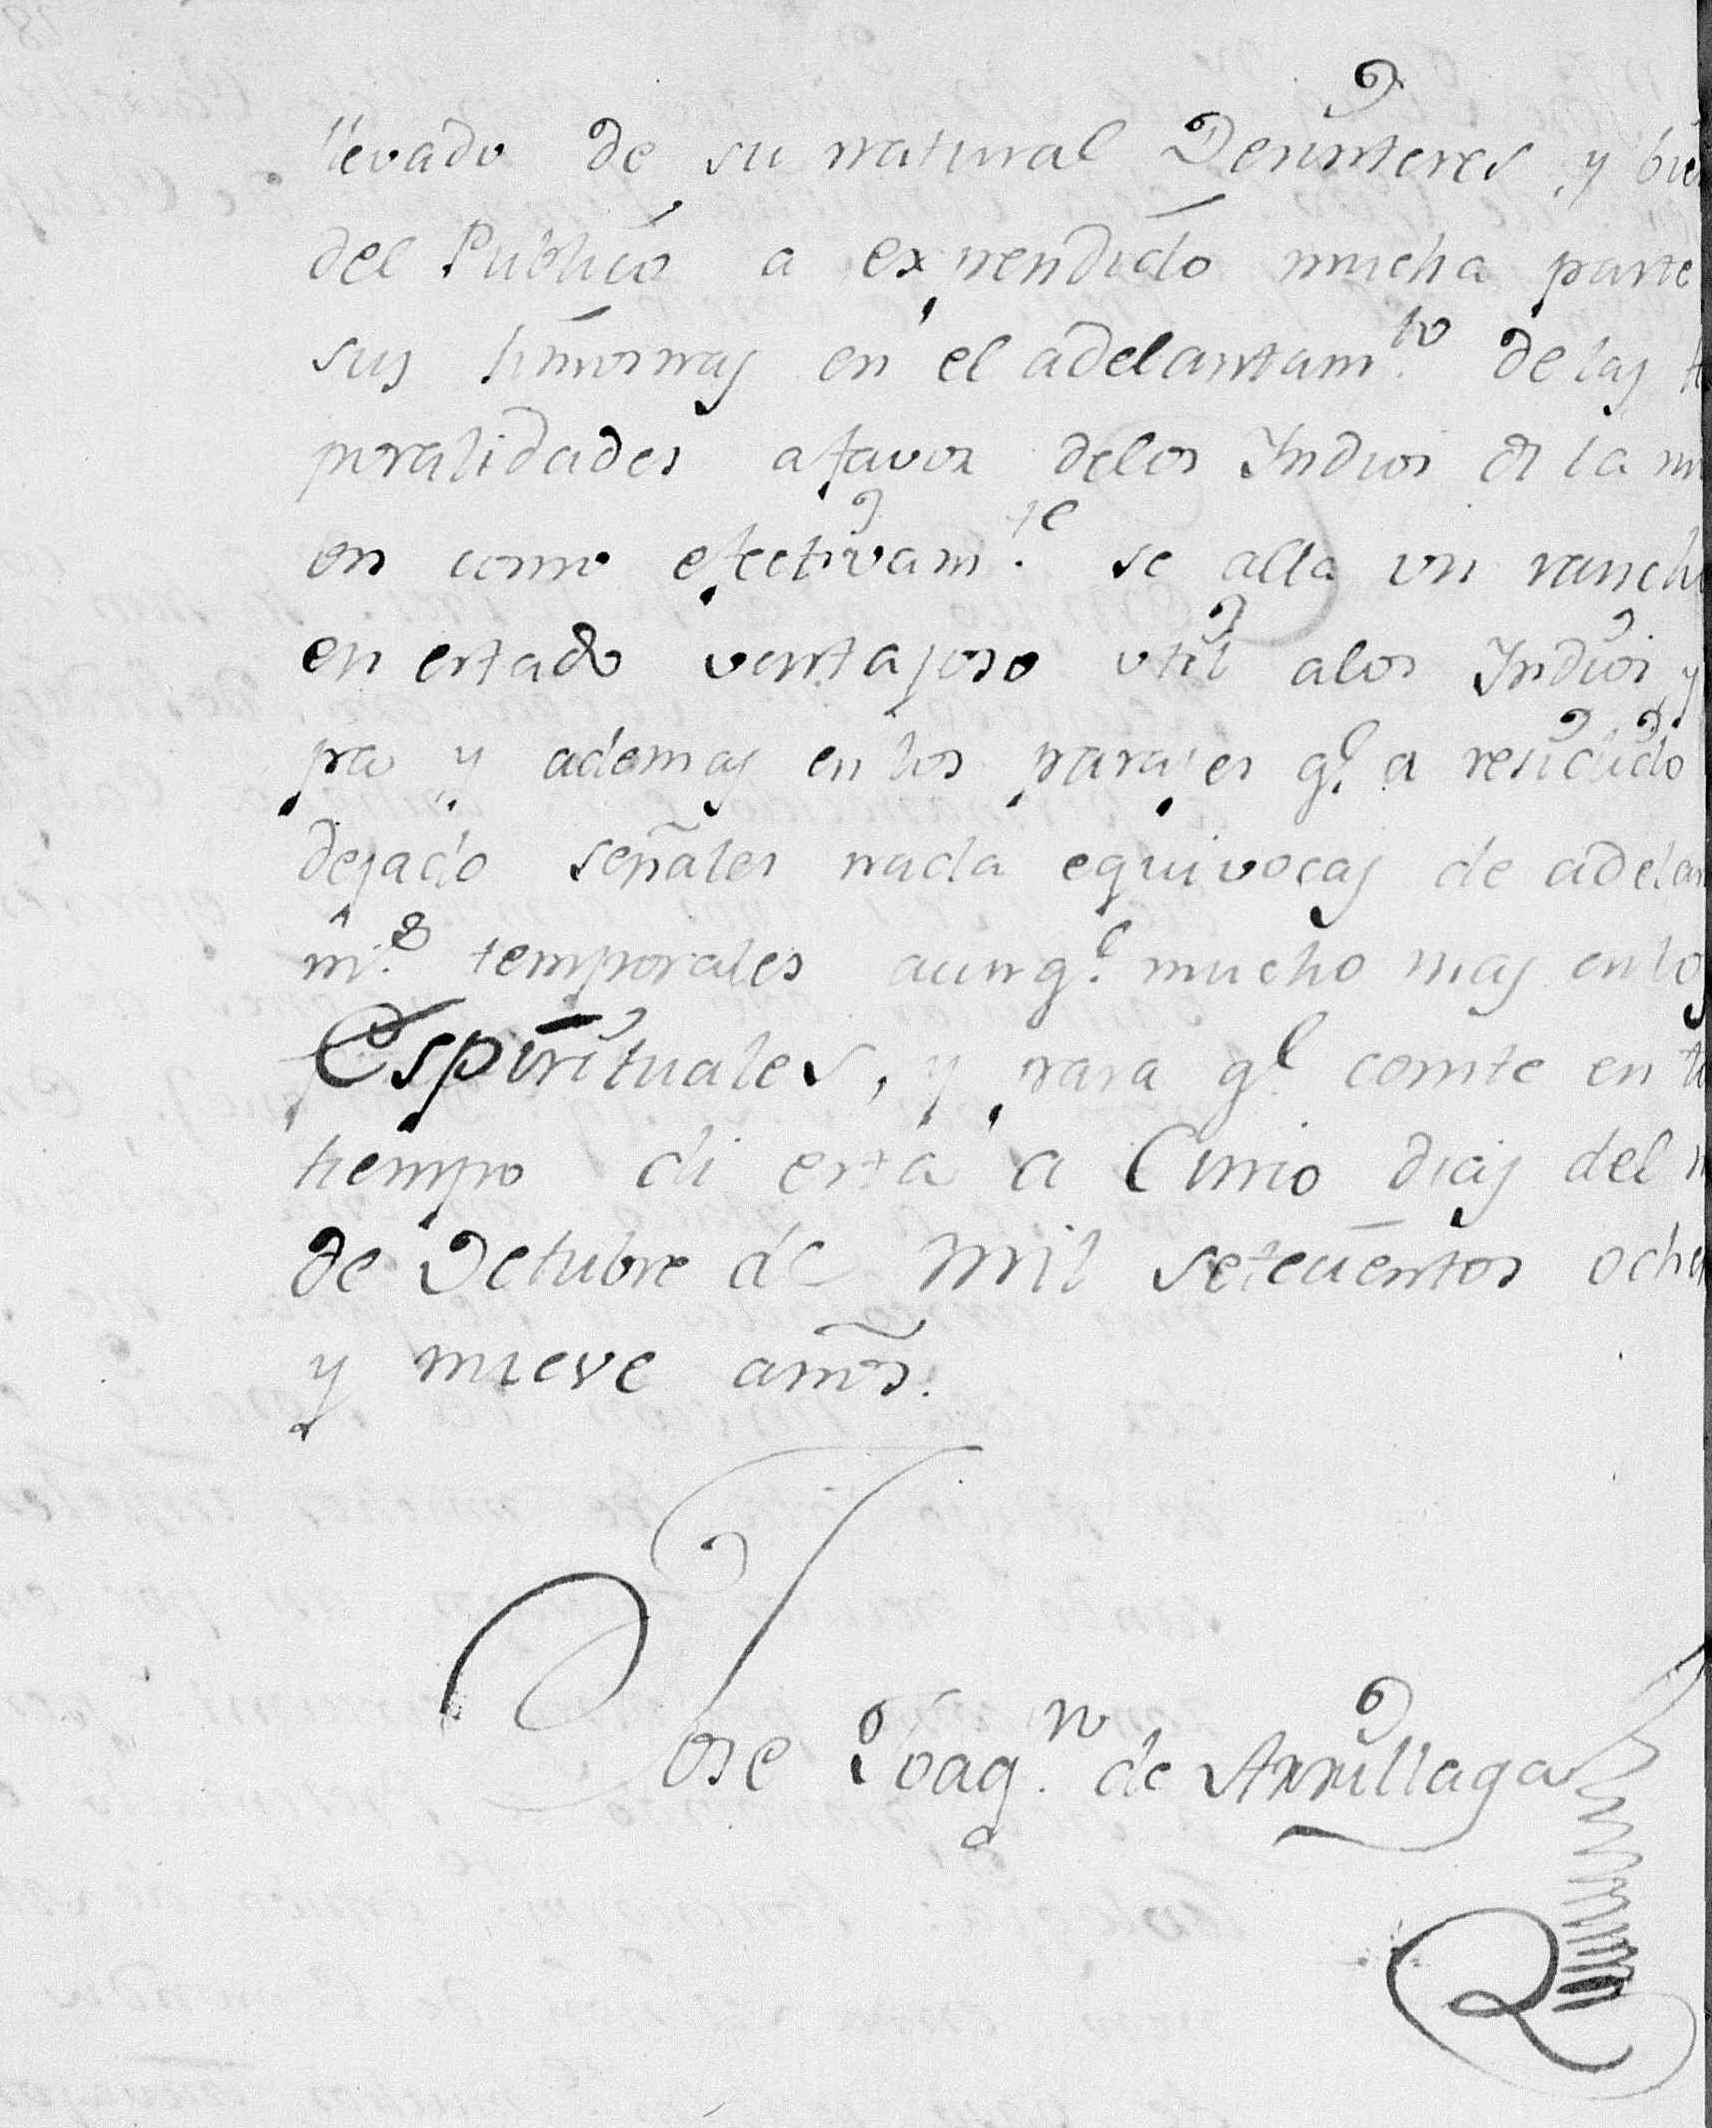 llevado de su natural Desinteres y bie
del Publico a expendido mucha parte
sus limosnas en el adelantam.to de las te
poralidades afavor delos Indios de la mi
on como efectivam.te se alla un rancho
en estado ventajoso util alos Indios y
pra y ademas en los parajes q.e a residido
dejado señales nada equivocas de adelan
m.s temporales aunq.e mucho mas en los
Espirituales, y para q.e conste en to
tiempo di esta a Cinco dias del m
de Octubre de mil setecientos oche
y nueve años.
Jose Joaq.n de Arrillaga